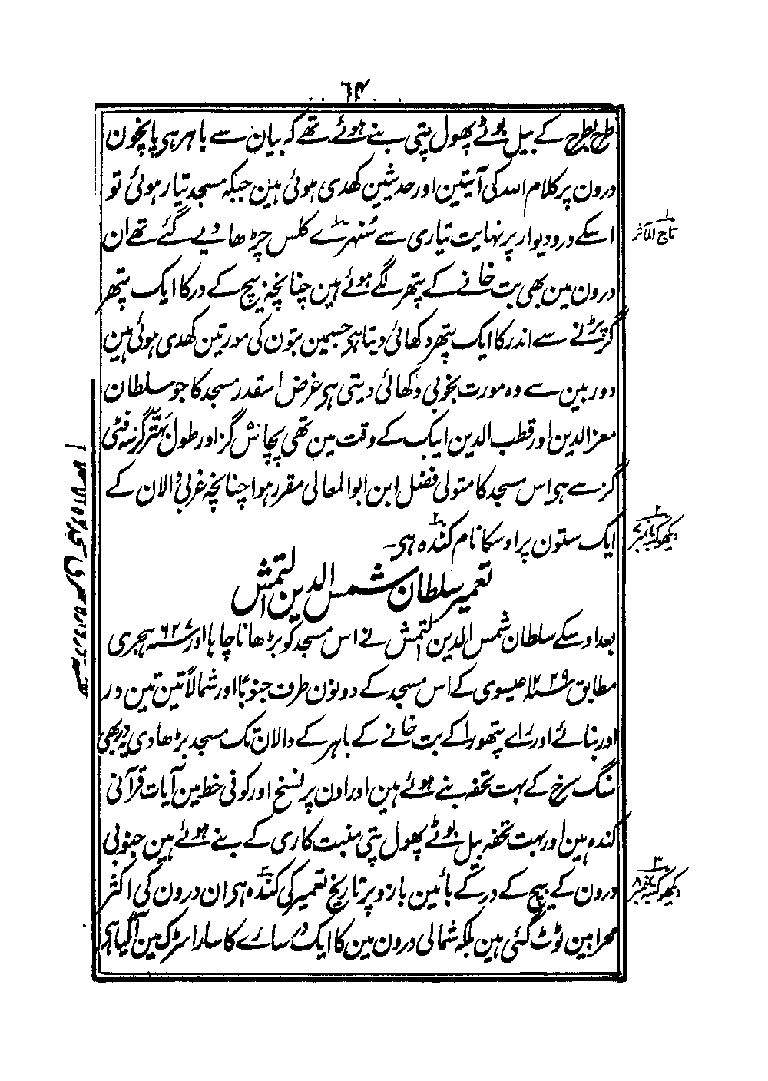 ۶۴
طرح بطرح کے بیل بوٹے پھول پتی بنے ہوئے تھے کہ بیان سے باہر ہی پانچون
درون پر کلام اللہ کی آیتین اور حدیثین کھدی ہوئی ہین جبکہ مسجد تیار ہوئی تو
اسکے در و دیوار پر نہایت تیاری سے سُنہرے کلس چڑھا دیے گئے تھے ان
۱ تاج المآثر
درون مین بھی بت خانے کے پتھر لگے ہوئے ہین چنانچہ بیچ کے در کا ایک پتھر
گر پڑنے سے اندر کا ایک پتھر دکھائی دیتا ہی جسمین بتون کی مورتین کھدی ہوئی ہین
دوربین سے وہ مورت بخوبی دکھائی دیتی ہی غرض اسقدر مسجد کا جو سلطان
معزالدین اور قطب الدین ایبک کے وقت مین تھی پچانس گز اور طول بہتر گز سہ فٹی
گز سے ہی اس مسجد کا متولی فضل ابن ابو المعالی مقرر ہوا چنانچہ غربی دالان کے
ایک ستون پر اوسکا نام کندہ ہی۔
۲ دیکھو کتبہ نمبر
تعمیر سلطان شمس الدین التمش
بعد اوسکے سلطان شمس الدین التمش نے اس مسجد کو بڑھانا چاہا اور ۶۲۷ ہجری
مطابق ۱۲۲۹ عیسوی کے اس مسجد کے دونون طرف جنوباً اور شمالاً تین تین در
اور بنائے اور رائے پتھورا کے بت خانے کے باہر کے دالان تک مسجد بڑھا دی یہ در بھی
سنگ سرخ کے بہت تحفہ بنے ہوئے ہین اور اون پر نسخ اور کوفی خط مین آیات قرآنی
کندہ ہین اور بہت تحفہ بیل بوٹے پھول پتی منبت کاری کے بنے ہوئے ہین جنوبی
درون کے بیچ کے در کے بائین بازو پر تاریخ تعمیر کی کندہ ہی ان درون کی اکثر
۳ دیکھو کتبہ نمبر
محرابین ٹوٹ گئی ہین بلکہ شمالی درون مین کا ایک در سارے کا سارا سڑک مین آگیا ہی